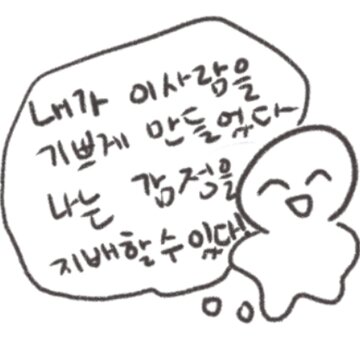 내가 이사람을
기쁘게 만들었다
나는 감정을
지배할수있다!